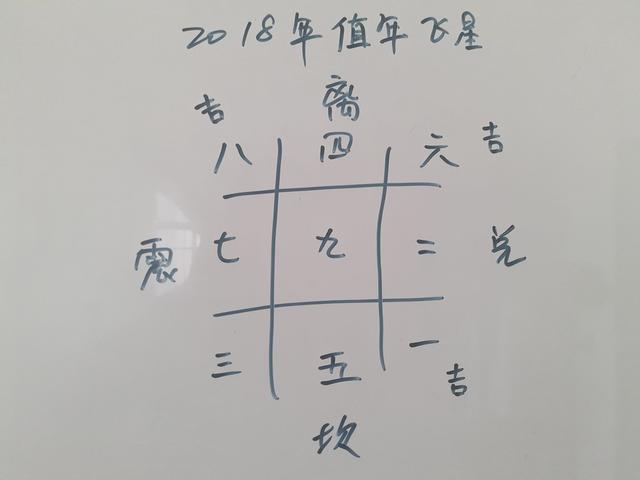 2018年值年飞星
离
吉
八 四 六 吉
震 七 九 二 兑
三 五 一
吉
坎